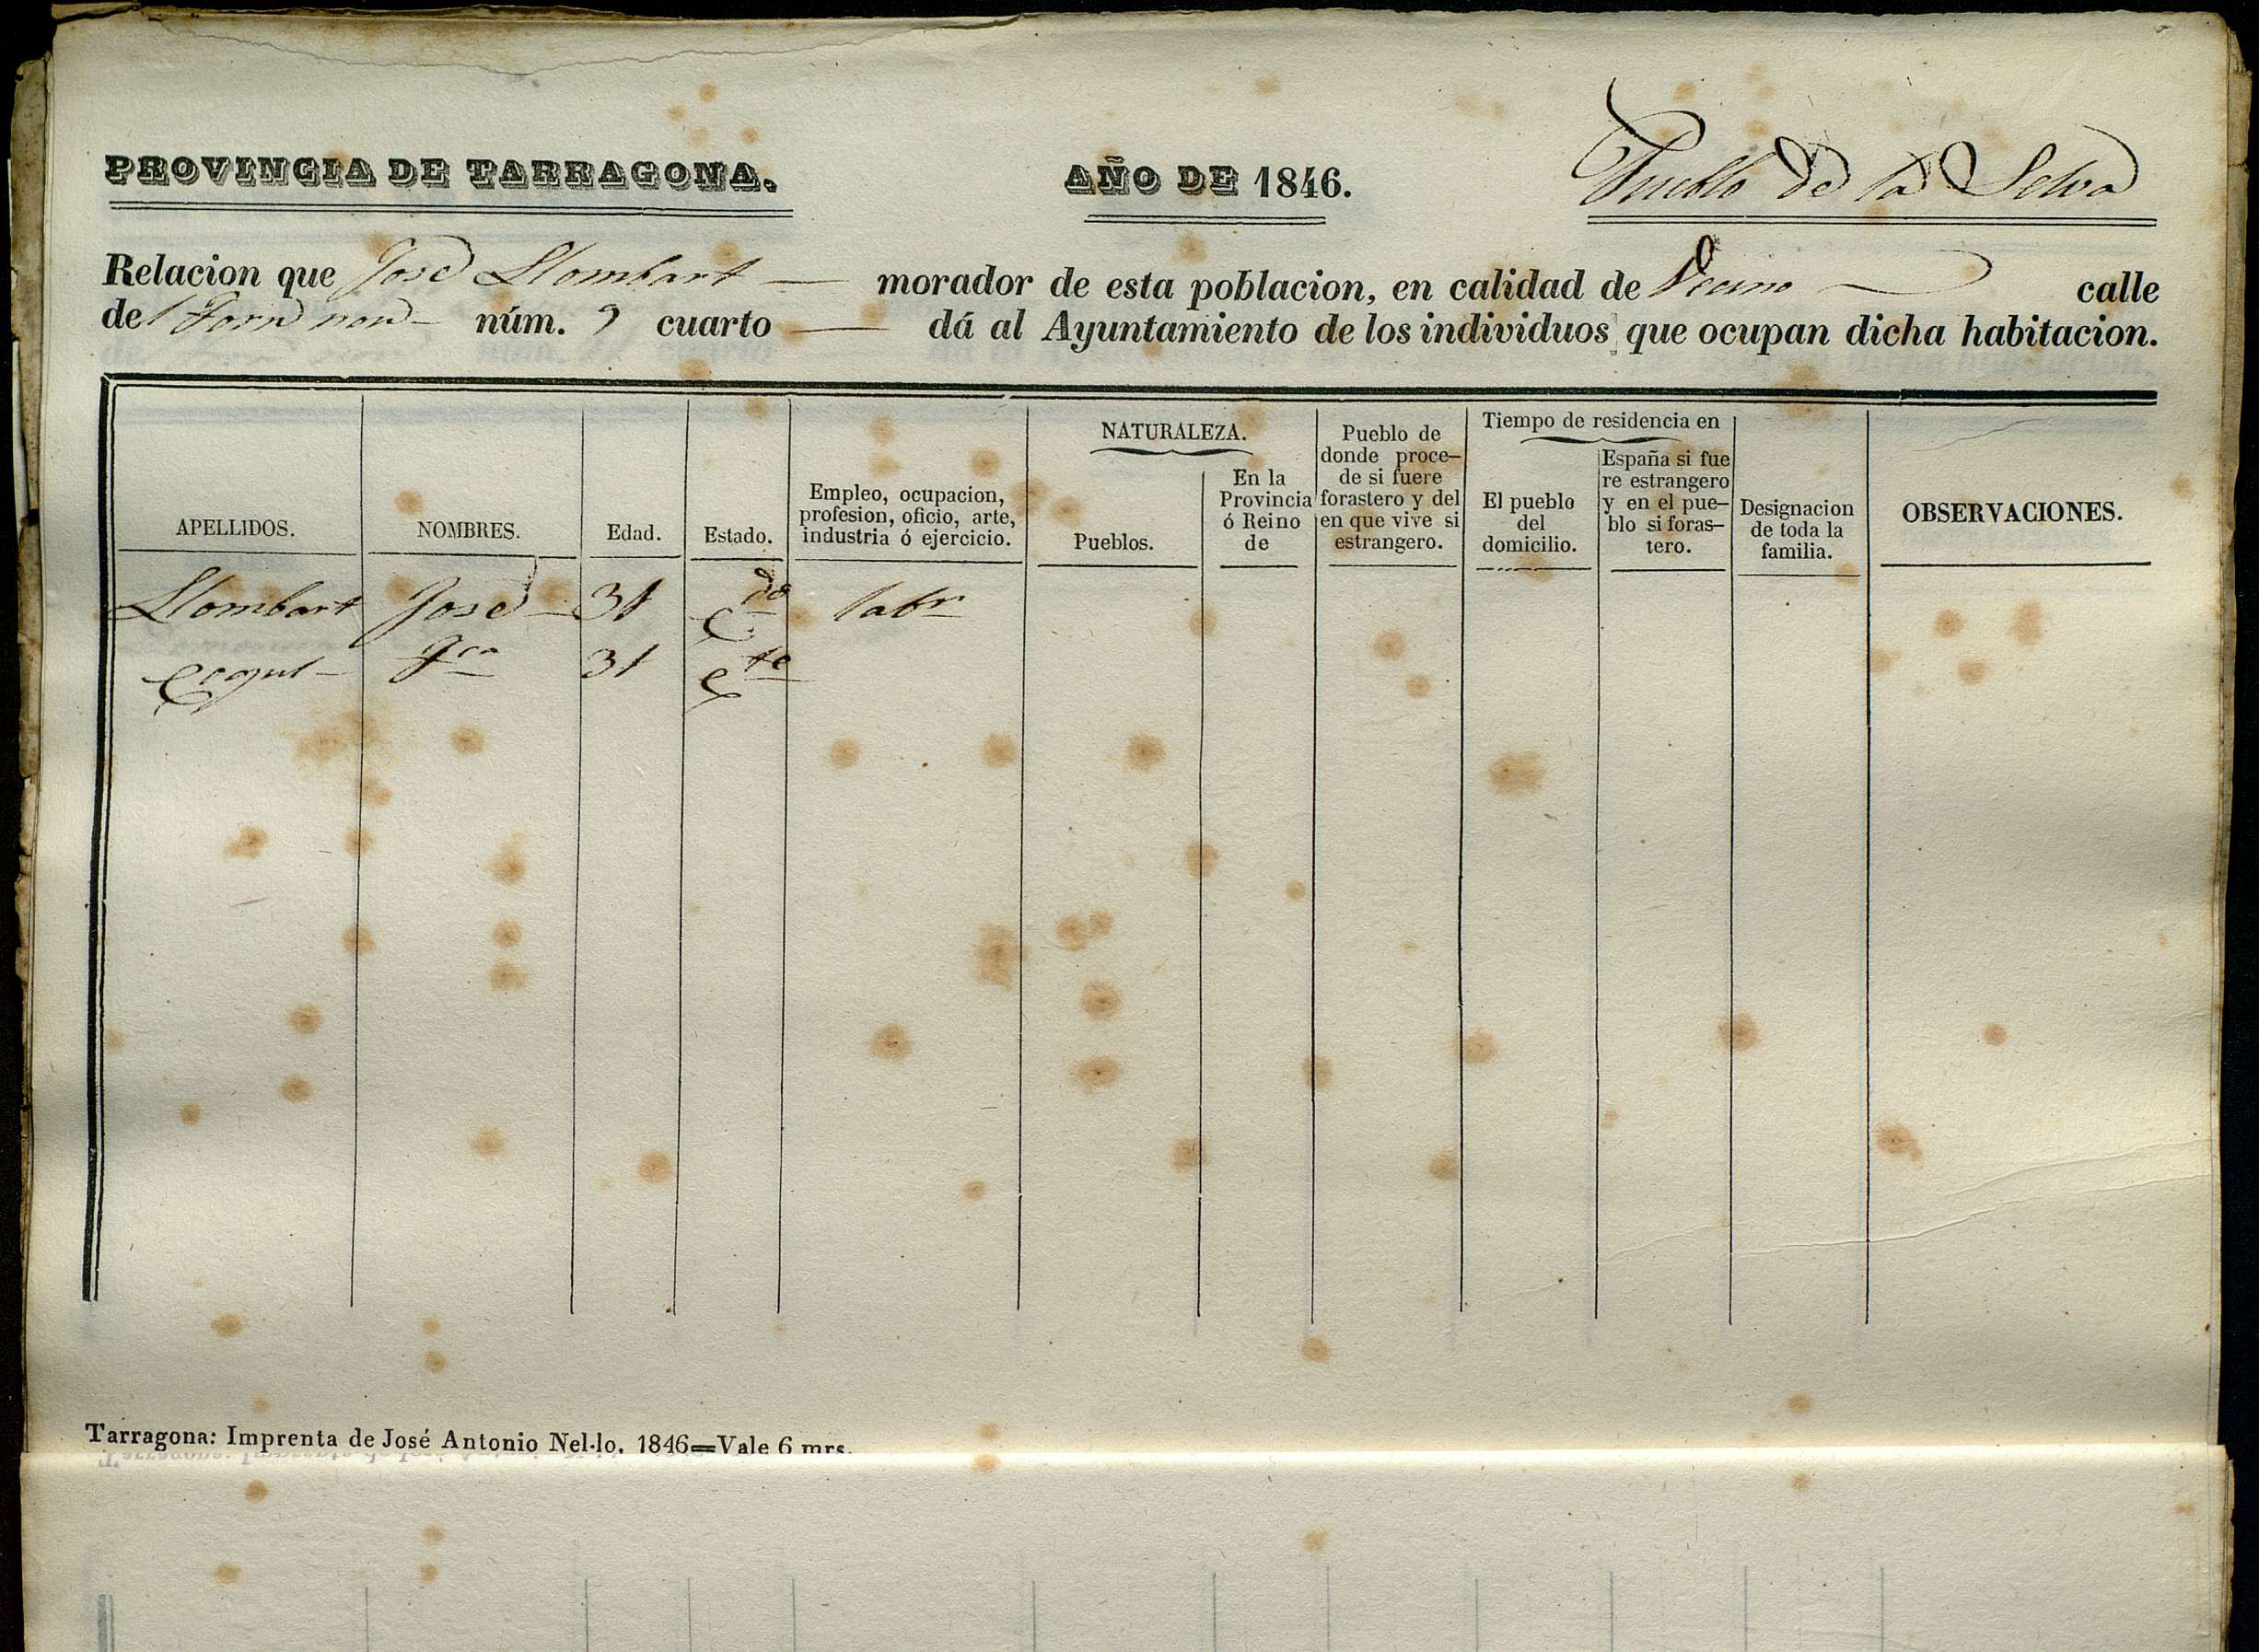 PROVINCIA DE TARRAGONA. AÑO DE 1846. Pueblo de la Selva
Relacion que José Llombart — morador de esta poblacion, en calidad de Vecino — calle
del Forn nou — núm. 9 cuarto — dá al Ayuntamiento de los individuos que ocupan dicha habitacion.
APELLIDOS.
NOMBRES.
Edad.
Estado.
Empleo, ocupacion,
profesion, oficio, arte,
industria ó ejercicio.
NATURALEZA.
Pueblos.
En la
Provincia
ó Reino
de
Pueblo de
donde proce-
de si fuere
forastero y del
en que vive si
estrangero.
Tiempo de residencia en
El pueblo
del
domicilio.
España si fue
re estrangero
y en el pue-
blo si foras-
tero.
Designacion
de toda la
familia.
OBSERVACIONES.
Llombart José — 31 C.do labr
31 C.te
Tarragona: Imprenta de José Antonio Nel·lo. 1846=Vale 6 mrs.